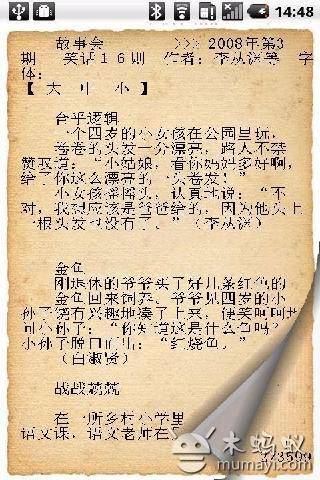 14:48
故事会 >>> 2008年第3
期 笑话16则 作者：李丛谜等 字
体：
【 大 中 小 】
合乎逻辑
一个四岁的小女孩在公园里玩，
卷卷的头发十分漂亮，路人不禁
赞叹道：“小姑娘，看你妈妈多好啊，
给了你这么漂亮的一头卷发！”
小女孩摇摇头，认真地说：“不
对，我想应该是爸爸给的，因为他头上
一根头发也没有了。”（李丛谜）
金鱼
刚退休的爷爷买了好几条红色的
金鱼回来饲养。爷爷见四岁的小
孙子饶有兴趣地凑了上来，便笑呵呵地
问小孙子：“你知道这是什么鱼吗？”
小孙子脱口而出：“红烧鱼。”
（白淑贤）
战战兢兢
在一所乡村小学里
语文课，语文老师在
木蚂蚁
mumayi.com